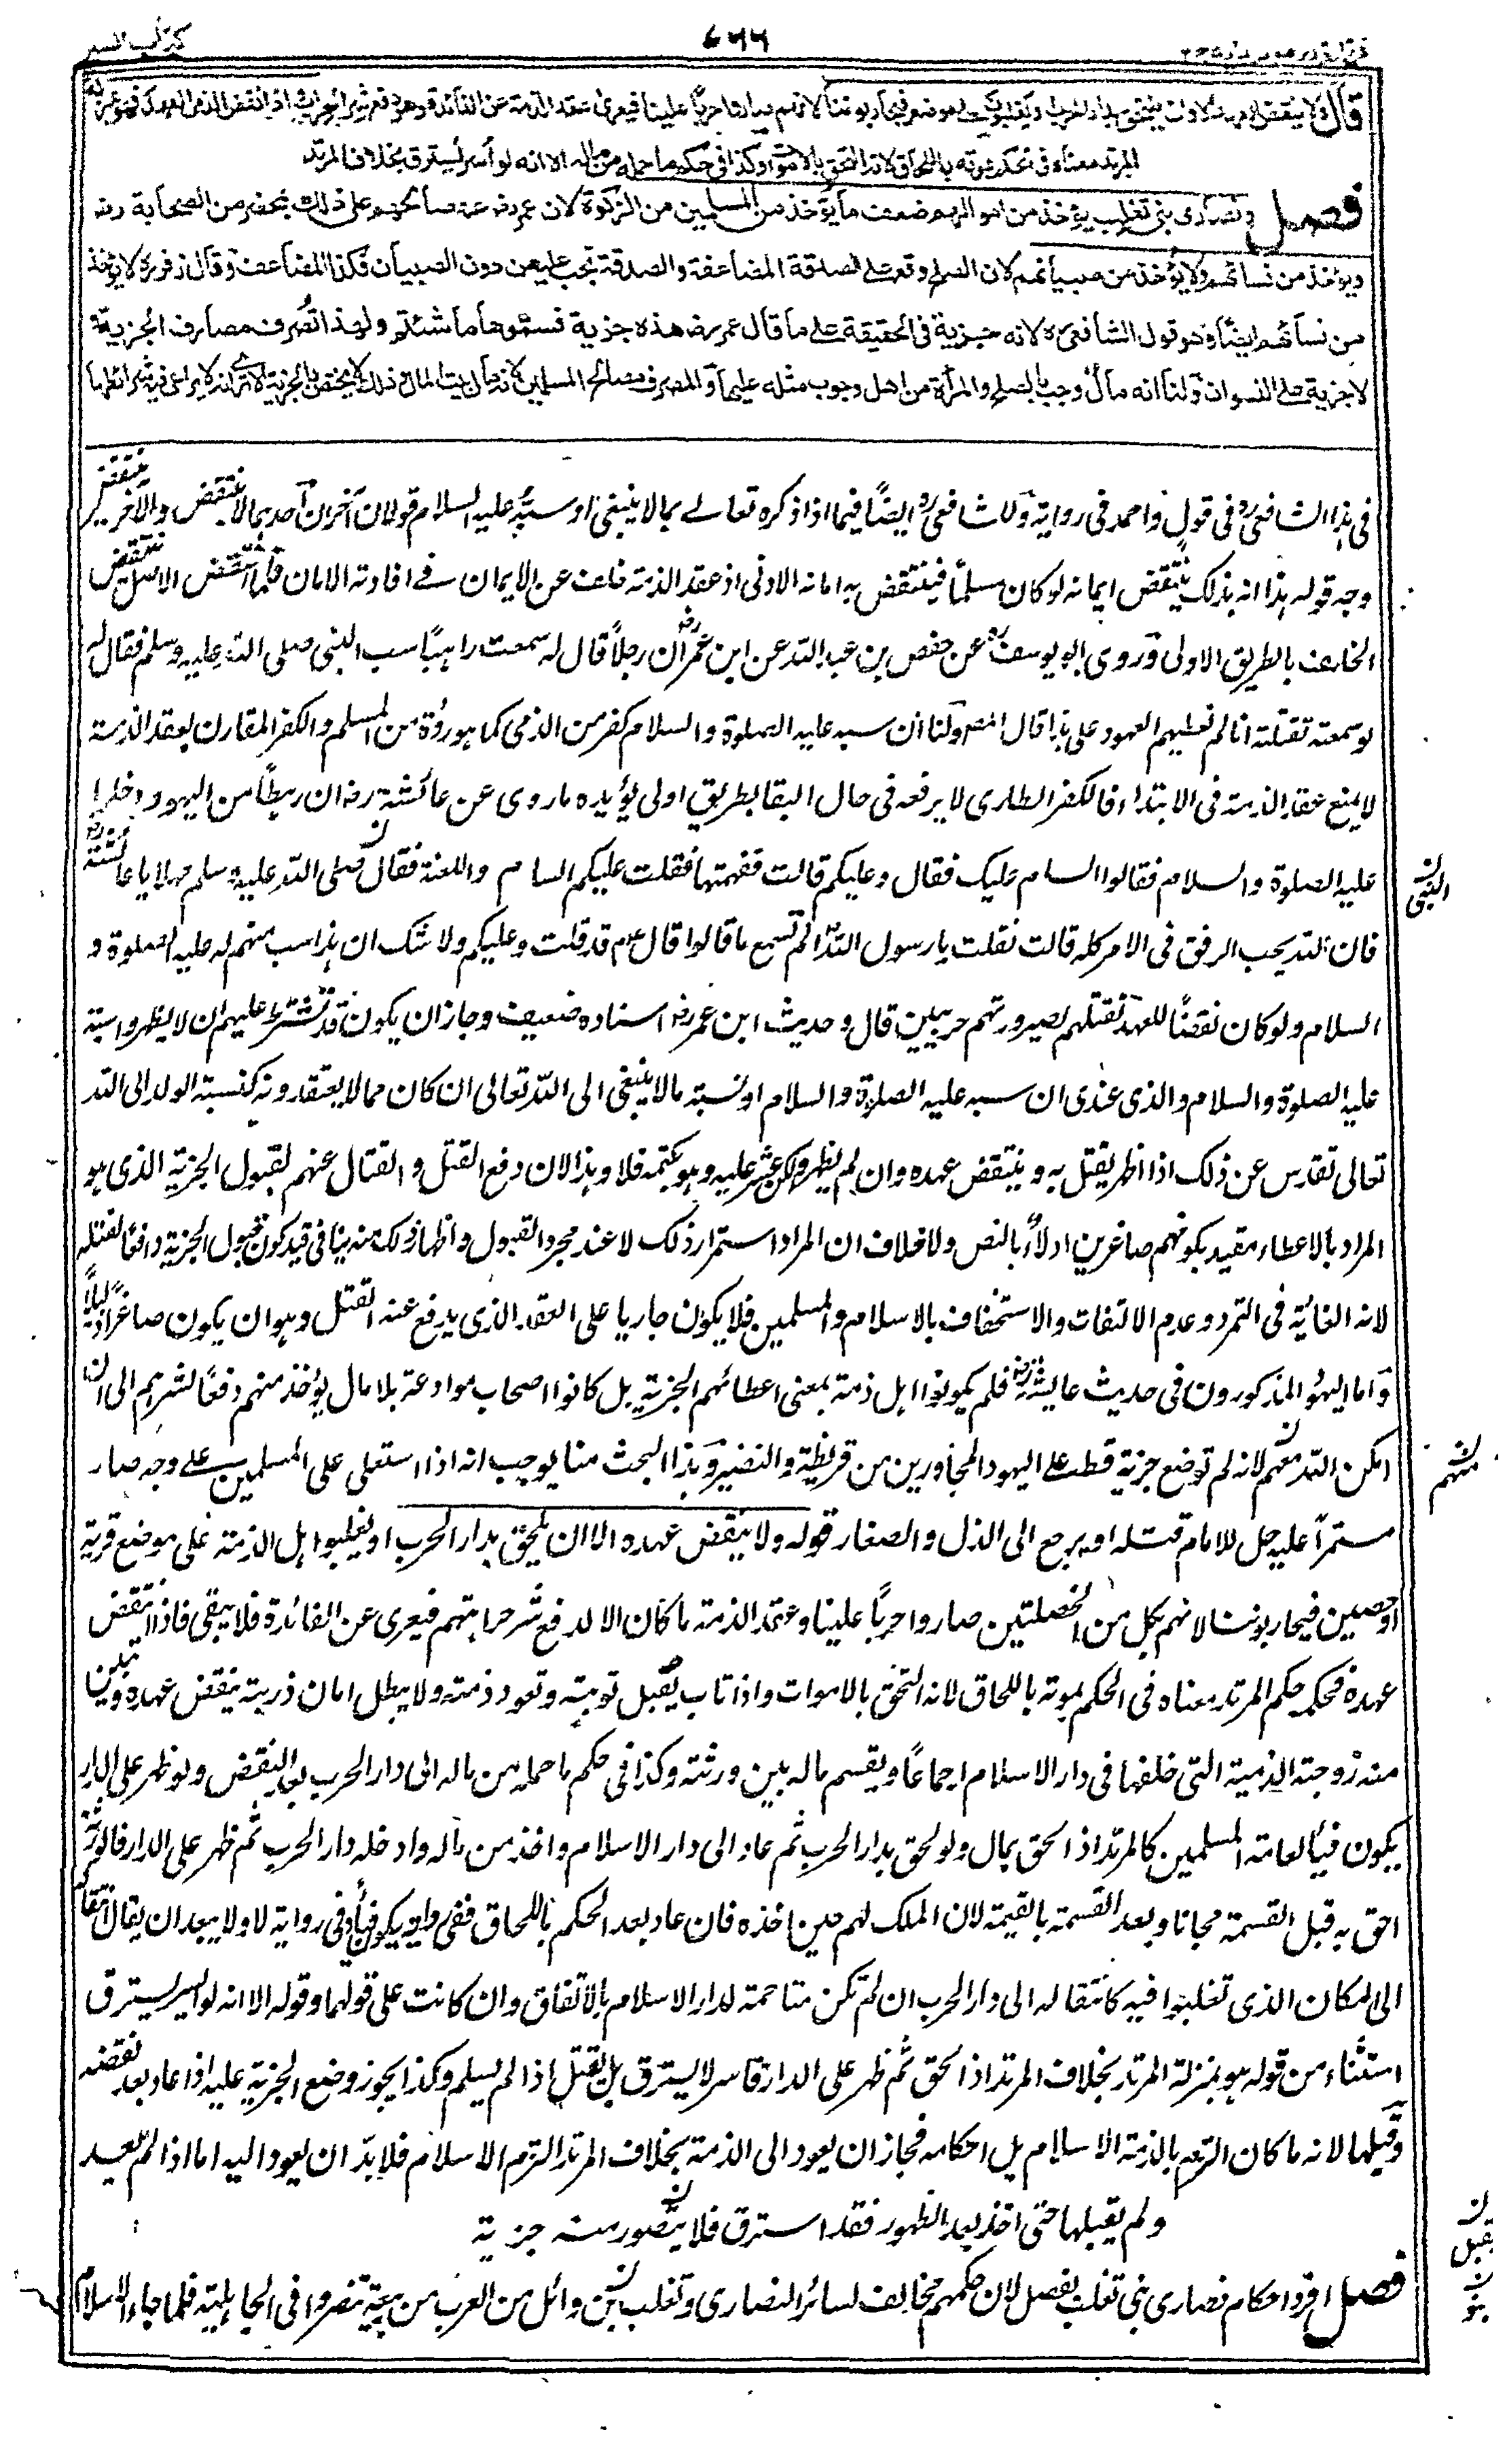 كتاب السير
٤٦٦
قال ولا ينقض العهد الا ان يلتحق بدار الحرب او يغلبون على موضع فيحاربوننا لانهم صاروا حربا علينا فيعرى عقد الذمة عن الفائدة وهو دفع شر الحراب واذا نقض الذمي العهد فهو بمنزلة
المرتد معناه في الحكم بموته باللحاق لانه التحق بالاموات وكذا في حكم ما حمله من ماله الا انه لو أسر يسترق بخلاف المرتد
فصل ونصارى بني تغلب يؤخذ من اموالهم ضعف ما يؤخذ من المسلمين من الزكوة لان عمر رضـ صالحهم على ذلك بمحضر من الصحابة رضـ
ويؤخذ من نسائهم ولا يؤخذ من صبيانهم لان الصلح وقع على الصدقة المضاعفة والصدقة تجب عليهن دون الصبيان فكذا المضاعف وقال زفر ره لا يؤخذ
من نسائهم ايضا وهو قول الشافعي ره لانه جزية في الحقيقة على ما قال عمر رضـ هذه جزية فسموها ما شئتم ولهذا تصرف مصارف الجزية
لا جزية على النسوان ولنا انه مال وجب بالصلح والمرأة من اهل وجوب مثله عليها والمصرف مصالح المسلمين لانه مال بيت المال وذلك لا يختص بالجزية الا ترى انه لا يراعى فيه شرائطها
في هذا الشافعي ره في قول واحمد في رواية وللشافعي ره ايضًا فيما اذا ذكره تعالے بما لا ينبغي او سبه عليه السلام قولان آخران احدهما لا ينتقض والآخر ينتقض
وجه قوله هذا انه بذلك ينتقض ايمانه لو كان مسلمًا فينتقض به امانه الادنى اذ عقد الذمة خلف عن الايمان فے افادته الامان فما ينتقض الاصل ينتقض
الخلف بالطريق الاولى وروى ابو يوسف ره عن حفص بن عبد الله عن ابن عمر رضـ ان رجلاً قال له سمعت راهبًا سب النبي صلى الله عليه وسلم فقال له
لو سمعته لقتلته انا لم نعطهم العهود على هذا قال المصـ ولنا ان سبه عليه الصلوة والسلام كفر من الذمي كما هو ردة من المسلم والكفر المقارن لعقد الذمة
لا يمنع عقد الذمة في الابتداء فالكفر الطارى لا يرفعه في حال البقا بطريق اولى يؤيده ما روى عن عائشة رضـ ان رهطًا من اليهود دخلوا
عليه الصلوة والسلام فقالوا السام عليك فقال وعليكم قالت ففهمتها فقلت عليكم السام واللعنة فقال صلى الله عليه وسلم مهلا يا عائشة رضـ
النبي
فان الله يحب الرفق في الامر كله قالت فقلت يا رسول الله الم تسمع ما قالوا قال عم قد قلت وعليكم ولا شك ان هذا سب منهم له عليه الصلوة و
السلام ولو كان نقضًا للعهد لقتلهم لصيرورتهم حربيين قال وحديث ابن عمر رضـ اسناده ضعيف وجاز ان يكون قد شرط عليهم ان لا يظهروا سبه
عليه الصلوة والسلام والذي عندي ان سبه عليه الصلوة والسلام او نسبة ما لا ينبغي الى الله تعالى ان كان مما لا يعتقدونه كنسبة الولد الى الله
تعالى تقدس عن ذلك اذا اظهره يقتل به وينتقض عهده وان لم يظهر ولكن عثر عليه وهو يكتمه فلا وهذا لان دفع القتل والقتال عنهم لقبول الجزية الذي هو
المراد بالاعطاء مقيد بكونهم صاغرين اذلاء بالنص ولا خلاف ان المراد استمرار ذلك لا عند مجرد القبول واظهار ذلك منه ينافي قيد كون قبول الجزية دافعًا لقتله
لانه الغاية في التمرد وعدم الالتفات والاستخفاف بالاسلام والمسلمين فلا يكون جاريا على العقد الذي يدفع عنه القتل وهو ان يكون صاغرًا ذليلًا
واما اليهود المذكورون في حديث عايشة رضـ فلم يكونوا اهل ذمة بمعنى اعطائهم الجزية بل كانوا اصحاب موادعة بلا مال يؤخذ منهم دفعًا لشرهم الى ان
امكن الله منهم لانه لم توضع جزية قط على اليهود المجاورين من قريظة والنضير وهذا البحث منا يوجب انه اذا استعلى على المسلمين على وجه صار
منهم
متمردًا عليه حل للامام قتله او يرجع الى الذل والصغار قوله ولا ينقض عهده الا ان يلحق بدار الحرب او يغلبوا اهل الذمة على موضع قرية
او حصين فيحاربوننا لانهم بكل من الخصلتين صاروا حربًا علينا وعقد الذمة ما كان الا لدفع شر حرابتهم فيعرى عن الفائدة فلا يبقى فاذا انتقض
عهده فحكمه حكم المرتد معناه في الحكم بموته باللحاق لانه التحق بالاموات واذا تاب تقبل توبته وتعود ذمته ولا يبطل امان ذريته بنقض عهده وتبين
منه زوجته الذمية التي خلفها في دار الاسلام اجماعًا ويقسم ماله بين ورثته وكذا في حكم ما حمله من ماله الى دار الحرب بعد النقض ولو ظهر على الدار
يكون فيئًا لعامة المسلمين كالمرتد اذا لحق بمال ولو لحق بدار الحرب ثم عاد الى دار الاسلام واخذ من ماله وادخله دار الحرب ثم ظهر على الدار فالورثة
احق به قبل القسمة مجانا وبعد القسمة بالقيمة لان الملك لهم حين اخذه فان عاد بعد الحكم باللحاق ففي رواية يكون فيئًا وفي رواية لا ولا يبعد ان يقال انتقاله
الى المكان الذي تغلبوا فيه كانتقاله الى دار الحرب ان لم تكن متاخمة لدار الاسلام بالاتفاق وان كانت على قولهما وقوله الا انه لو اسر يسترق
استثناء من قوله هو بمنزلة المرتد بخلاف المرتد اذا لحق ثم ظهر على الدار فاسر لا يسترق بل يقتل اذا لم يسلم وكذا يجوز وضع الجزية عليه اذا عاد بعد نقضه
وقبلها لانه ما كان التزم بالذمة الاسلام بل احكامه فجاز ان يعود الى الذمة بخلاف المرتد التزم الاسلام فلا بد ان يعود اليه اما اذا لم يعد
ولم يقبلها حتى اخذ بعد الظهور فقد استرق فلا يتصور منه جزية
يقبل
فصل افرد احكام نصارى بني تغلب بفصل لان حكمهم مخالف لسائر النصارى وتغلب بن وائل من العرب من ربيعة تنصروا في الجاهلية فلما جاء الاسلام
بنو